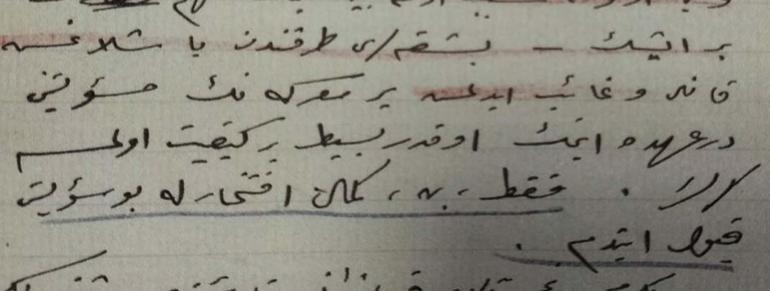 بر ایشك — بشقه‌لری طرفندن باشلانمش
قانلی و غائب ایدلمش بر معركه نك مسئولیتنی
درعهده ایتمك اوقدر بسیط بر كیفیت اولمسه
كرك. فقط، بن، كمال افتخارله بو مسئولیتی
قبول ایتدم.